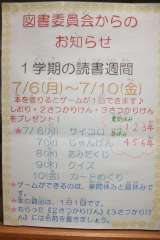 図書委員会からの
お知らせ
1学期の読書週間
7/6(月)～7/10(金)
本を借りるとゲームが1回できます♪
しおり・2さつかりけん・3さつかりけん
をプレゼント!
★7/6(月) サイコロ
7(火) じゃんけん
8(水) あみだくじ
9(木) クイズ
10(金) カードめくり
昼休み
1 2 3年
4 5 6年
★ゲームができるのは、業間休みと昼休みです。
★本の貸出は、1日1回です。
★もらった《2さつかりけん》《3さつかりけん》
には名前を書きましょう。